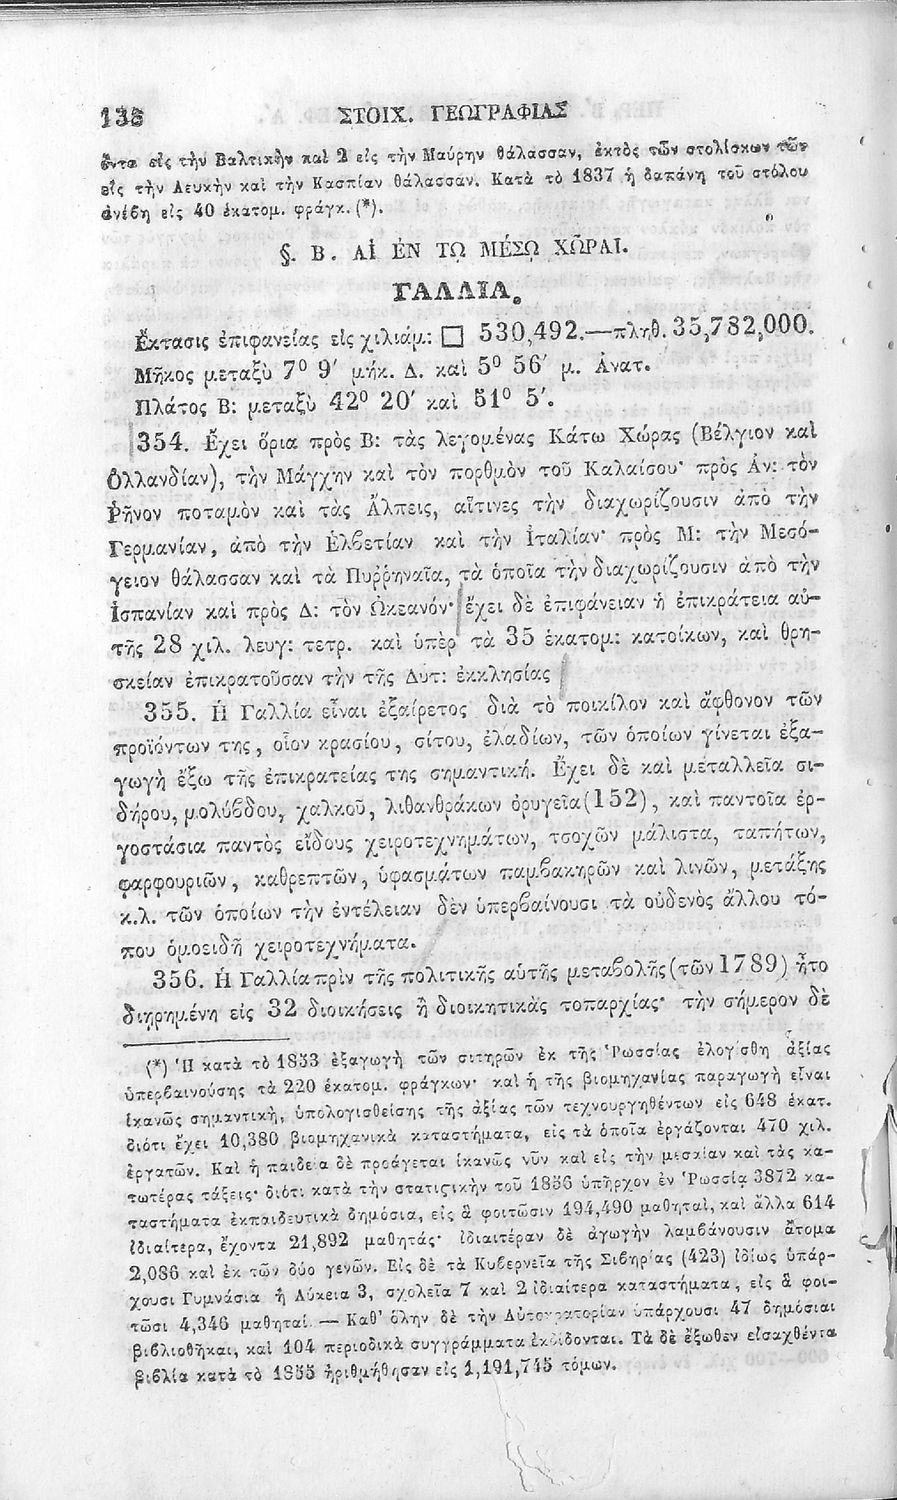 138 ΣΤΟΙΧ. ΓΕΩΓΡΑΦΙΑΣ
ὄντα εἰς τὴν Βαλτικὴν καὶ 2 εἰς τὴν Μαύρην θάλασσαν, ἐκτὸς τῶν στολίσκων τῶν
εἰς τὴν Λευκὴν καὶ τὴν Κασπίαν θάλασσαν. Κατὰ τὸ 1837 ἡ δαπάνη τοῦ στόλου
ἀνέϐη εἰς 40 ἑκατομ. φράγκ. (*).
§. Β. ΑἹ ἘΝ ΤΩ ΜΈΣΩ ΧΩ͂ΡΑΙ.
ΓΑΛΛΙΑ.
Ἔκτασις ἐπιφανείας εἰς χιλιάμ: □ 530,492.—πληθ. 35,782,000.
Μῆκος μεταξὺ 7° 9′ μήκ. Δ. καὶ 5° 56′ μ. Ἀνατ.
Πλάτος Β: μεταξὺ 42° 20′ καὶ 51° 5′.
354. Ἔχει ὅρια πρὸς Β: τὰς λεγομένας Κάτω Χώρας (Βέλγιον καὶ
Ὁλλανδίαν), τὴν Μάγχην καὶ τὸν πορθμὸν τοῦ Καλαίσου· πρὸς Ἀν: τὸν
Ῥῆνον ποταμὸν καὶ τὰς Ἄλπεις, αἵτινες τὴν διαχωρίζουσιν ἀπὸ τὴν
Γερμανίαν, ἀπὸ τὴν Ἑλϐετίαν καὶ τὴν Ἰταλίαν· πρὸς Μ: τὴν Μεσό-
γειον θάλασσαν καὶ τὰ Πυῤῥηναῖα, τὰ ὁποῖα τὴν διαχωρίζουσιν ἀπὸ τὴν
Ἱσπανίαν καὶ πρὸς Δ: τὸν Ὠκεανόν· ἔχει δὲ ἐπιφάνειαν ἡ ἐπικράτεια αὐ-
τῆς 28 χιλ. λευγ: τετρ. καὶ ὑπὲρ τὰ 35 ἑκατομ: κατοίκων, καὶ θρη-
σκείαν ἐπικρατοῦσαν τὴν τῆς Δυτ: ἐκκλησίας
355. Ἡ Γαλλία εἶναι ἐξαίρετος διὰ τὸ ποικίλον καὶ ἄφθονον τῶν
προϊόντων της, οἷον κρασίου, σίτου, ἐλαδίων, τῶν ὁποίων γίνεται ἐξα-
γωγὴ ἔξω τῆς ἐπικρατείας της σημαντική. Ἔχει δὲ καὶ μεταλλεῖα σι-
δήρου, μολύϐδου, χαλκοῦ, λιθανθράκων ὀρυγεῖα (152), καὶ παντοῖα ἐρ-
γοστάσια παντὸς εἴδους χειροτεχνημάτων, τσοχῶν μάλιστα, ταπήτων,
φαρφουριῶν, καθρεπτῶν, ὑφασμάτων παμϐακηρῶν καὶ λινῶν, μετάξης
κ.λ. τῶν ὁποίων τὴν ἐντέλειαν δὲν ὑπερϐαίνουσι τὰ οὐδενὸς ἄλλου τό-
που ὁμοειδῆ χειροτεχνήματα.
356. Ἡ Γαλλία πρὶν τῆς πολιτικῆς αὑτῆς μεταϐολῆς (τῶν 1789) ἦτο
διῃρημένη εἰς 32 διοικήσεις ἢ διοικητικὰς τοπαρχίας· τὴν σήμερον δὲ
(*) Ἡ κατὰ τὸ 1853 ἐξαγωγὴ τῶν σιτηρῶν ἐκ τῆς Ῥωσσίας ἐλογίσθη ἀξίας
ὑπερϐαινούσης τὰ 220 ἑκατομ. φράγκων· καὶ ἡ τῆς βιομηχανίας παραγωγὴ εἶναι
ἱκανῶς σημαντικὴ, ὑπολογισθείσης τῆς ἀξίας τῶν τεχνουργηθέντων εἰς 648 ἑκατ.
διότι ἔχει 10,380 βιομηχανικὰ καταστήματα, εἰς τὰ ὁποῖα ἐργάζονται 470 χιλ.
ἐργατῶν. Καὶ ἡ παιδεία δὲ προάγεται ἱκανῶς νῦν καὶ εἰς τὴν μεσαίαν καὶ τὰς κα-
τωτέρας τάξεις· διότι κατὰ τὴν στατιςικὴν τοῦ 1856 ὑπῆρχον ἐν Ῥωσσίᾳ 3872 κα-
ταστήματα ἐκπαιδευτικὰ δημόσια, εἰς ἃ φοιτῶσιν 194,490 μαθηταὶ, καὶ ἄλλα 614
ἰδιαίτερα, ἔχοντα 21,892 μαθητάς· ἰδιαιτέραν δὲ ἀγωγὴν λαμϐάνουσιν ἄτομα
2,086 καὶ ἐκ τῶν δύο γενῶν. Εἰς δὲ τὰ Κυϐερνεῖα τῆς Σιϐηρίας (423) ἰδίως ὑπάρ-
χουσι Γυμνάσια ἢ Λύκεια 3, σχολεῖα 7 καὶ 2 ἰδιαίτερα καταστήματα, εἰς ἃ φοι-
τῶσι 4,346 μαθηταί. — Καθ’ ὅλην δὲ τὴν Αὐτοκρατορίαν ὑπάρχουσι 47 δημόσιαι
βιϐλιοθῆκαι, καὶ 104 περιοδικὰ συγγράμματα ἐκδίδονται. Τὰ δὲ ἔξωθεν εἰσαχθέντα
βιϐλία κατὰ τὸ 1855 ἠριθμήθησαν εἰς 1,191,745 τόμων.